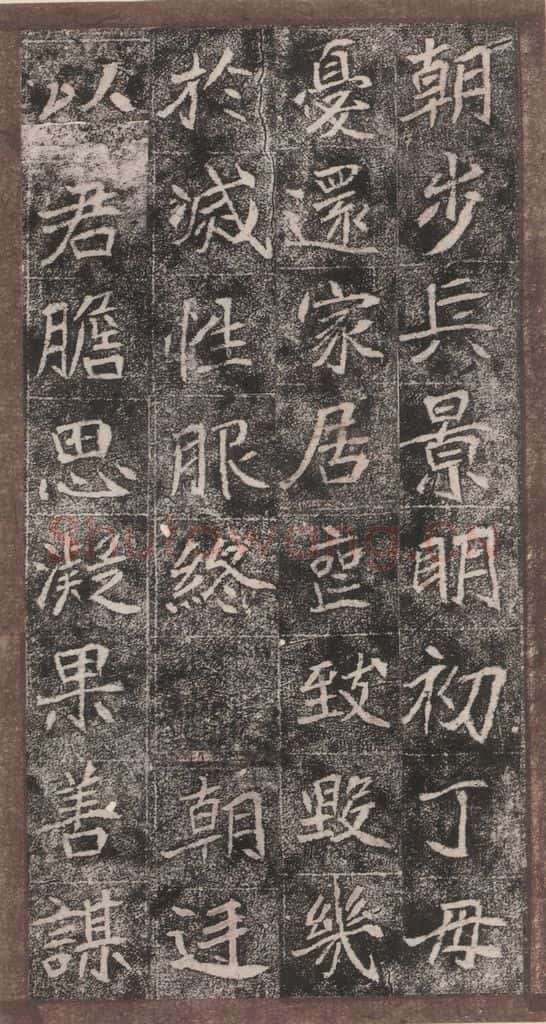 朝步兵景眀初丁母
憂還家居喪致毀幾
於滅性服終 朝廷
以君膽思凝果善謀